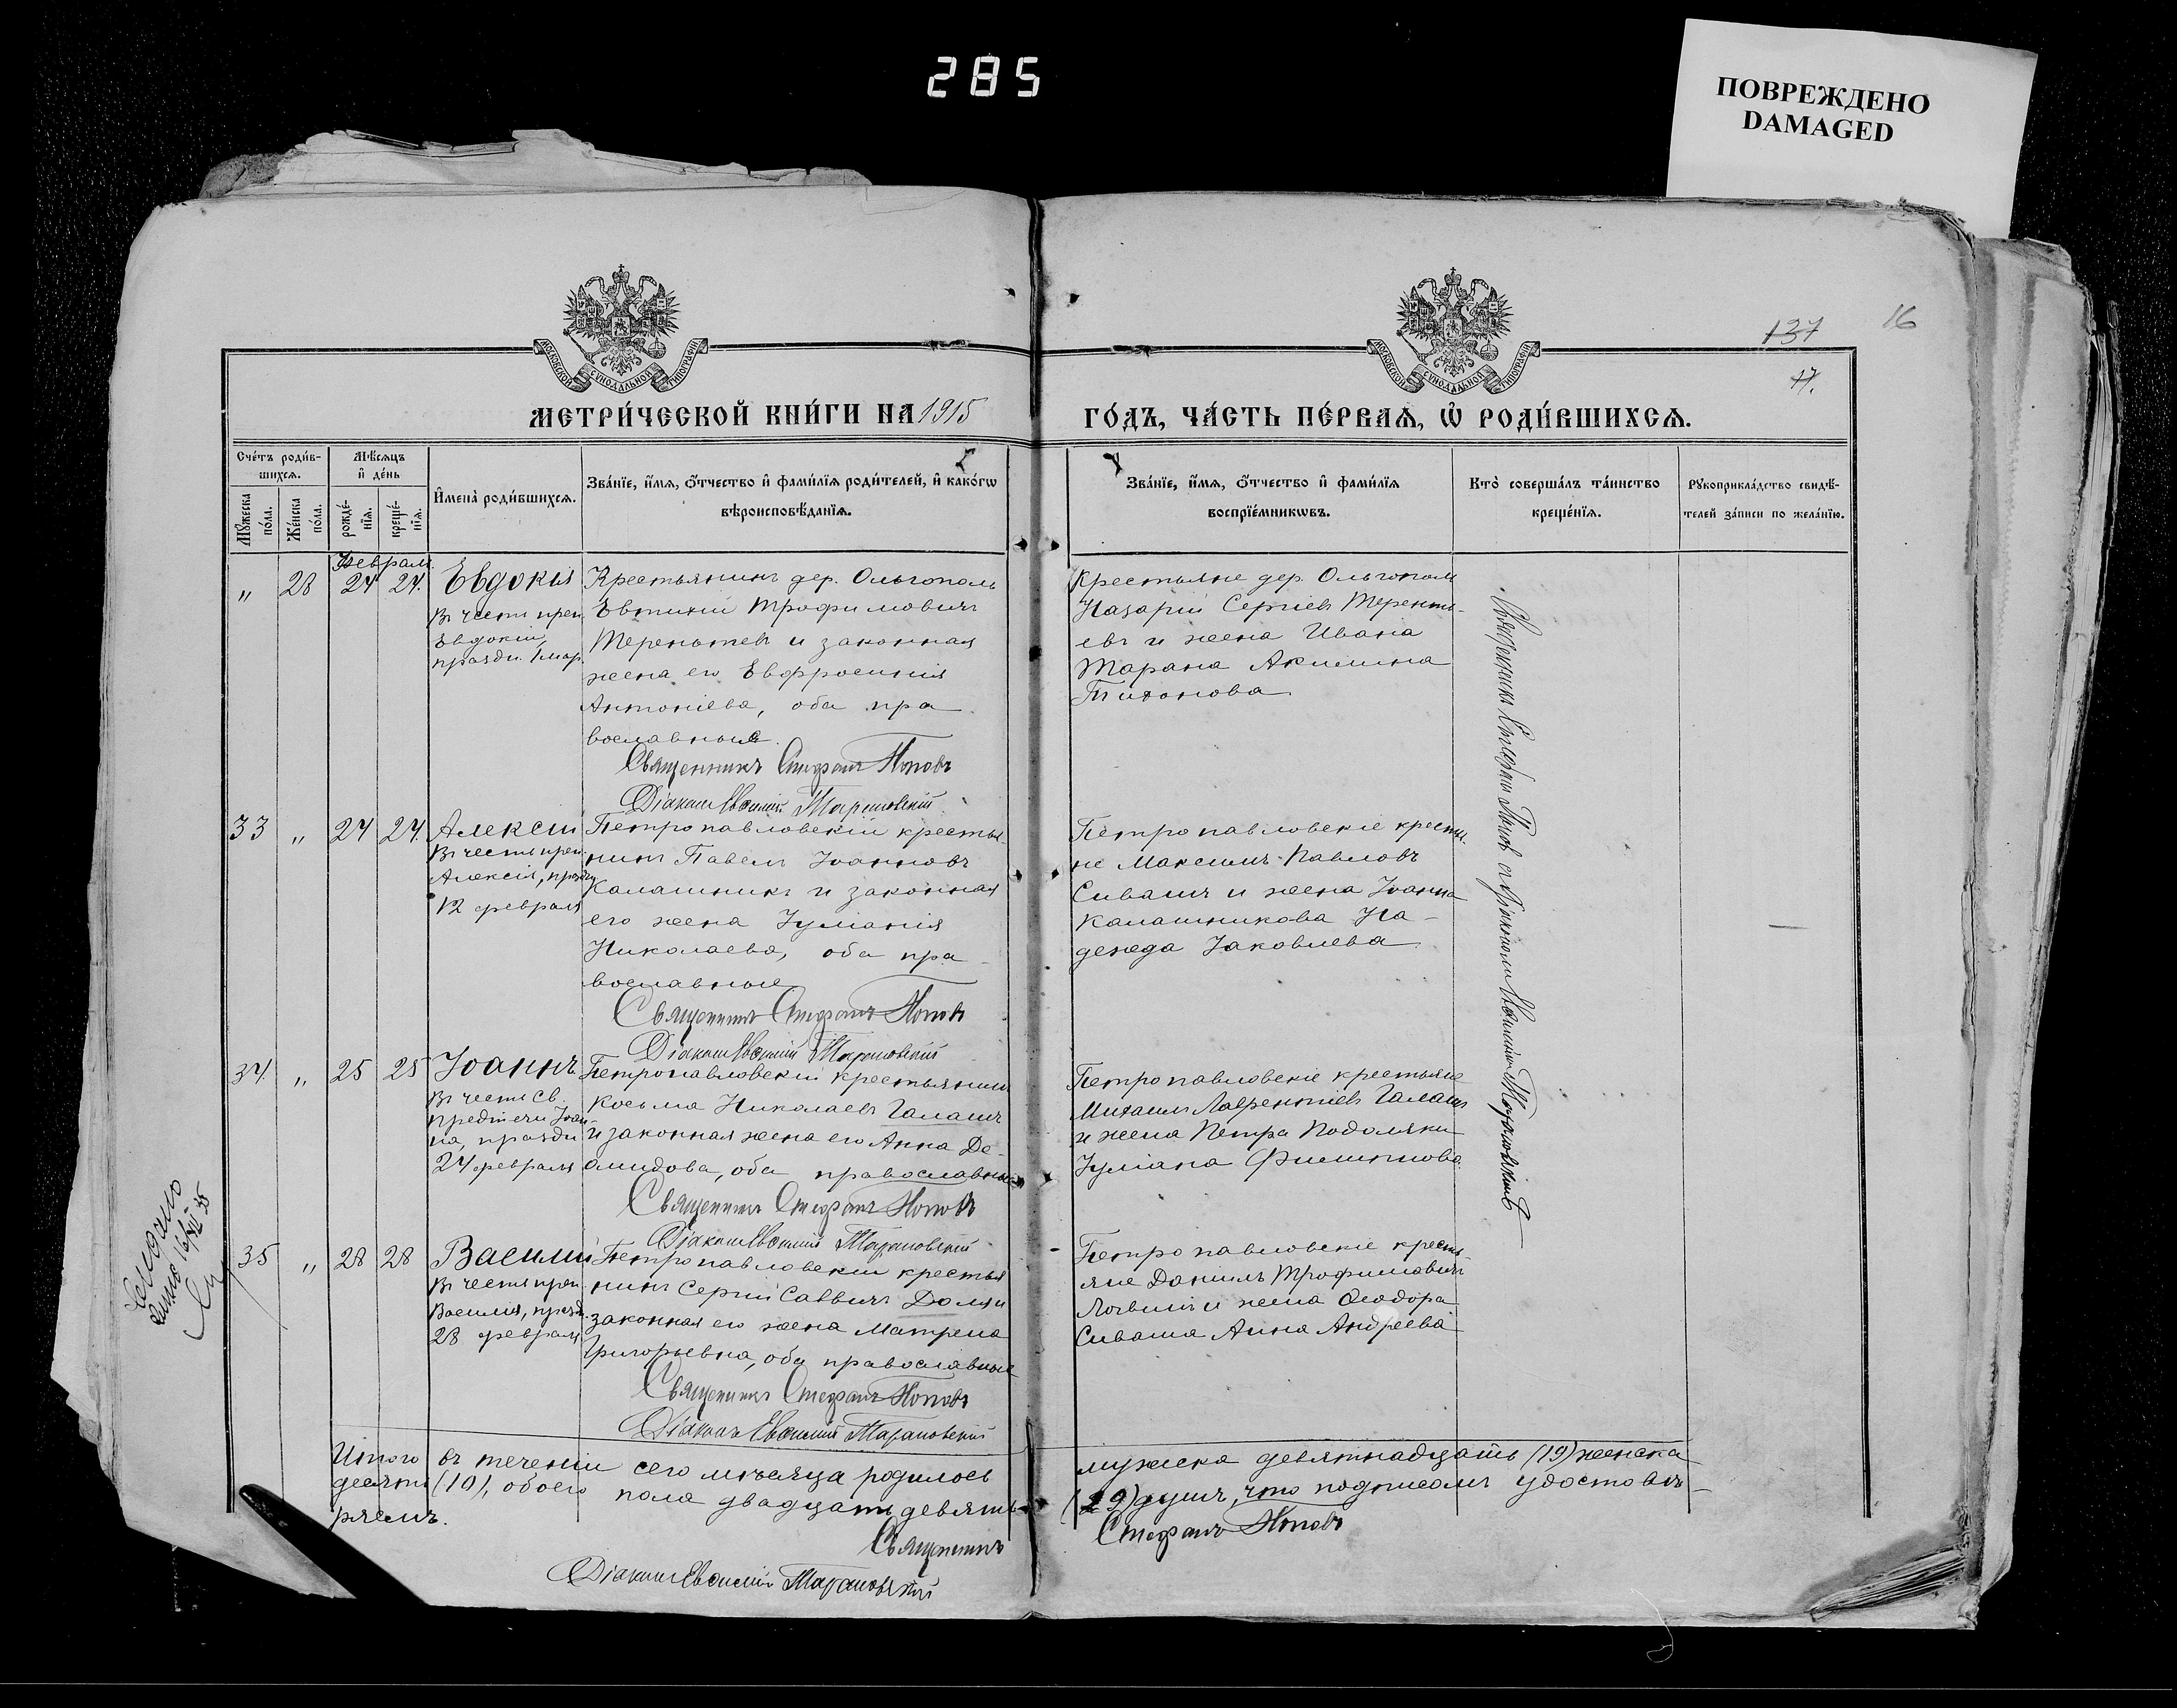 285
ПОВРЕЖДЕНО
DAMAGED
МОСКОВСКОЙ СѴНОДАЛЬНОЙ ТИПОГРАФІИ
МОСКОВСКОЙ СѴНОДАЛЬНОЙ ТИПОГРАФІИ
137
16
17.
МЕТРИ́ЧЕСКОЙ КНИ́ГИ НА 1915
ГО́ДЪ, ЧА́СТЬ ПЕ́РВАѦ, Ѡ҆ РОДИ́ВШИХСѦ.
Сче́тъ роди́в-
шихсѧ.
Мꙋ́жеска по́ла.
Же́нска по́ла.
Мѣ́сѧцъ
и҆ де́нь
рожде́-
нїѧ.
креще́-
нїѧ.
И҆мена̀ роди́вшихсѧ.
Зва́нїе, и҆́мѧ, ѻ҆́тчество и҆ фами́лїѧ роди́телей, и҆ како́гѡ
вѣроисповѣ́данїѧ.
Зва́нїе, и҆́мѧ, ѻ҆́тчество и҆ фами́лїѧ
воспрїе́мникѡвъ.
Кто̀ соверша́лъ та́инство
креще́нїѧ.
Рꙋкоприкла́дство свидѣ́-
телей за́писи по жела́нїю.
Февраль
„ 28 24 24. Евдокія
Въ честь преп.
Евдокіи,
праздн. 1 мар.
Крестьянинъ дер. Ольгополь
Евтихій Трофимовичъ
Терентьевъ и законная
жена его Евфросинія
Антоніева, оба пра
вославные.
Священникъ Стефанъ Поповъ
Діаконъ Евсимій Тарановскій
Крестьяне дер. Ольгополь
Назарій Сергіевъ Теренть-
евъ и жена Ивана
Тарана Акилина
Титонова
Священникъ Стефанъ Поповъ съ
33 „ 24 24. Алексій
Въ честь преп.
Алексія, праздн.
12 февраля
Петропавловскій крестья
нинъ Павелъ Іоанновъ
Калашникъ и законная
его жена Іуліанія
Николаева, оба пра-
вославные
Священникъ Стефанъ Поповъ
Діаконъ Евсимій Тарановскій
Петропавловскіе крестья-
не Максимъ Павловъ
Сивашъ и жена Іоанна
Калашникова На-
дежда Іаковлева
34. „ 25 25 Іоаннъ
Въ честь Св.
Предтечи Іоан-
на, праздн
24 февраля
Петропавловскій крестьянинъ
Косьма Николаевъ Галашъ
и законная жена его Анна Де-
омидова, оба православные
Священникъ Стефанъ Поповъ
Діаконъ Евсимій Тарановскій
Петропавловскіе крестьяне
Михаилъ Лаврентіевъ Галашъ
и жена Петра Подоляки
Іуліана Филиппова.
35 „ 28 28 Василій
Въ честь преп.
Василія, празд.
28 февраля
Петропавловскій крестья
нинъ Сергій Саввичъ Доля и
законная его жена Матрена
Григорьевна, оба православные
Священникъ Стефанъ Поповъ
Діаконъ Евсимій Тарановскій
Петропавловскіе кресть-
яне Даніилъ Трофимовичъ
Логвинъ и жена Ѳеодора
Сиваша Анна Андреева
Итого въ теченіи сего мѣсяца родилось мужеска девятнадцать (19) женска
десять (10), обоего пола двадцать девять (29) душъ, что подписомъ удостовѣ-
ряемъ.
Священникъ Стефанъ Поповъ
Діаконъ Евсимій Тарановскій